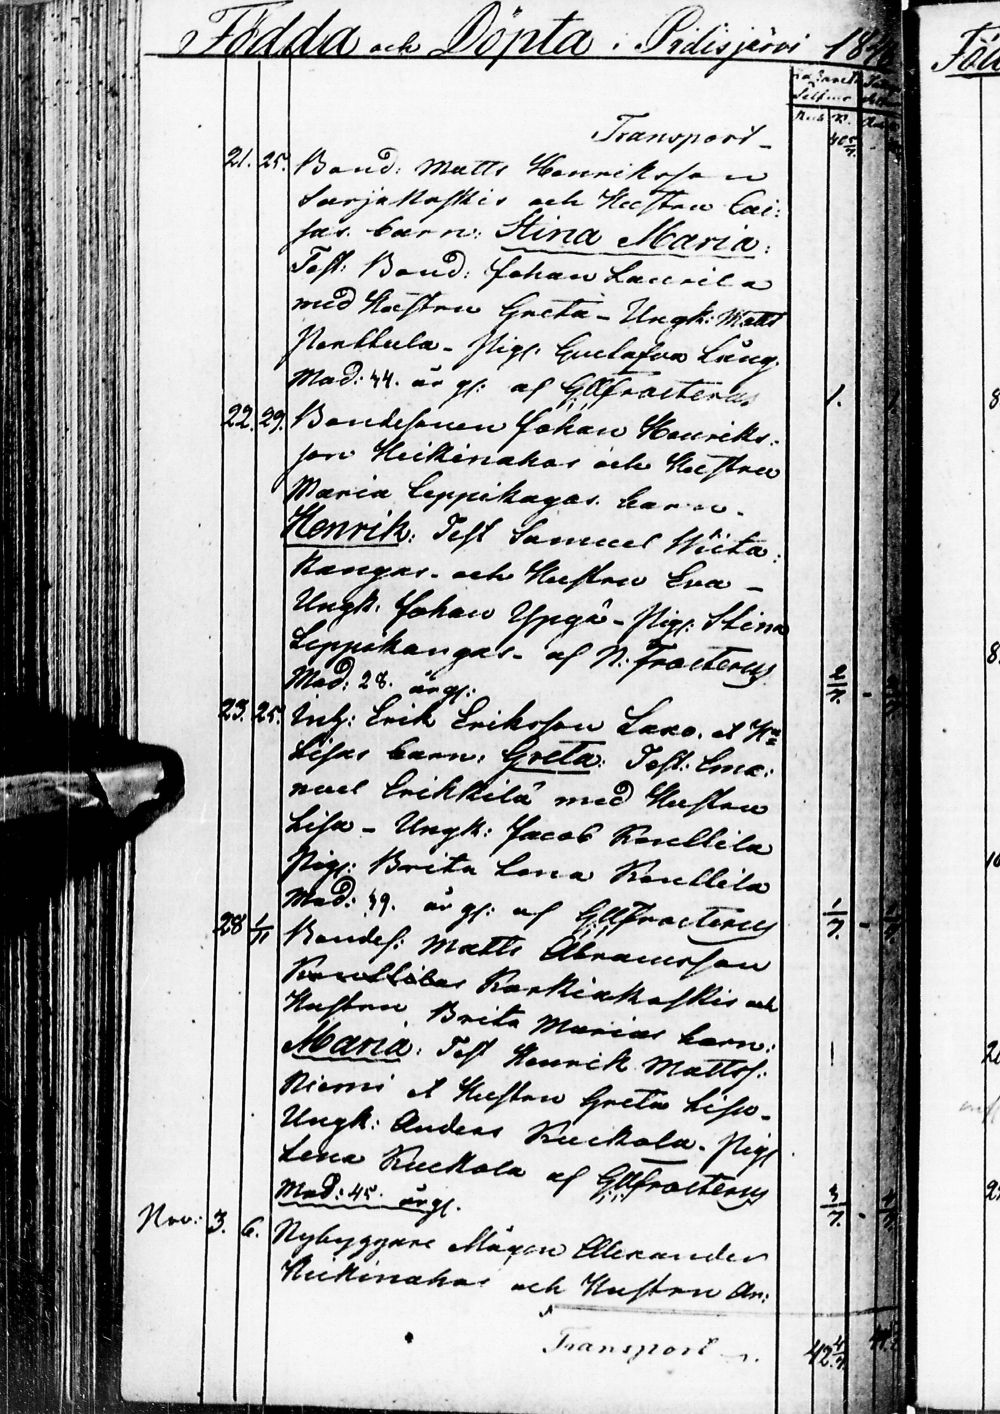 Födda och Döpta i Pidisjärvi 184
Transport
40 5/7.
21. 25. Bond: Matts Henriksson
Sarjakoskis och Hustru Cai:
sas barn: Stina Maria:
Test: Bond: Johan Laurila
med Hustru Greta - Ungk: Matts
Perttula - Pig: Gustafva Lång.
Mod: 44. år gl: af GAFrosterus 1.
22. 29. Bondesonen Johan Henriks:
son Heikinahos och Hustru
Maria Leppikagas barn
Henrik: Test Samuel Wiita:
kangas och Hustru Eva -
Ungk: Johan Ypyä - Pig: Stina
Leppikangas - af N: Frosterus
Mod: 28. årgl:
23. 25. Inh: Erik Eriksson Laxo. et Hu
Lisas barn: Greta: Test: Ema:
nuel Erikkilä med Hustru
Lisa - Ungk: Jacob Knuttila
Pig: Brita Lena Knuttila
Mod: 49. år gl: af GAFrosterus 1/7.
28 1/11 Bondes: Matts Abramsson
Karkiakoskis och
Hustru Brita Marias barn:
Maria: Test Henrik Mattss:
Niemi et Hustru Greta Lisa -
Ungk: Anders Kuckola - Pig
Lena Kuckola af GAFrosterus
Mod: 45. årgl.
Nov: 3. 6. Nybyggare Måzen Allexander
Heikinahos och Hustru An:
Transport
42 4/7.